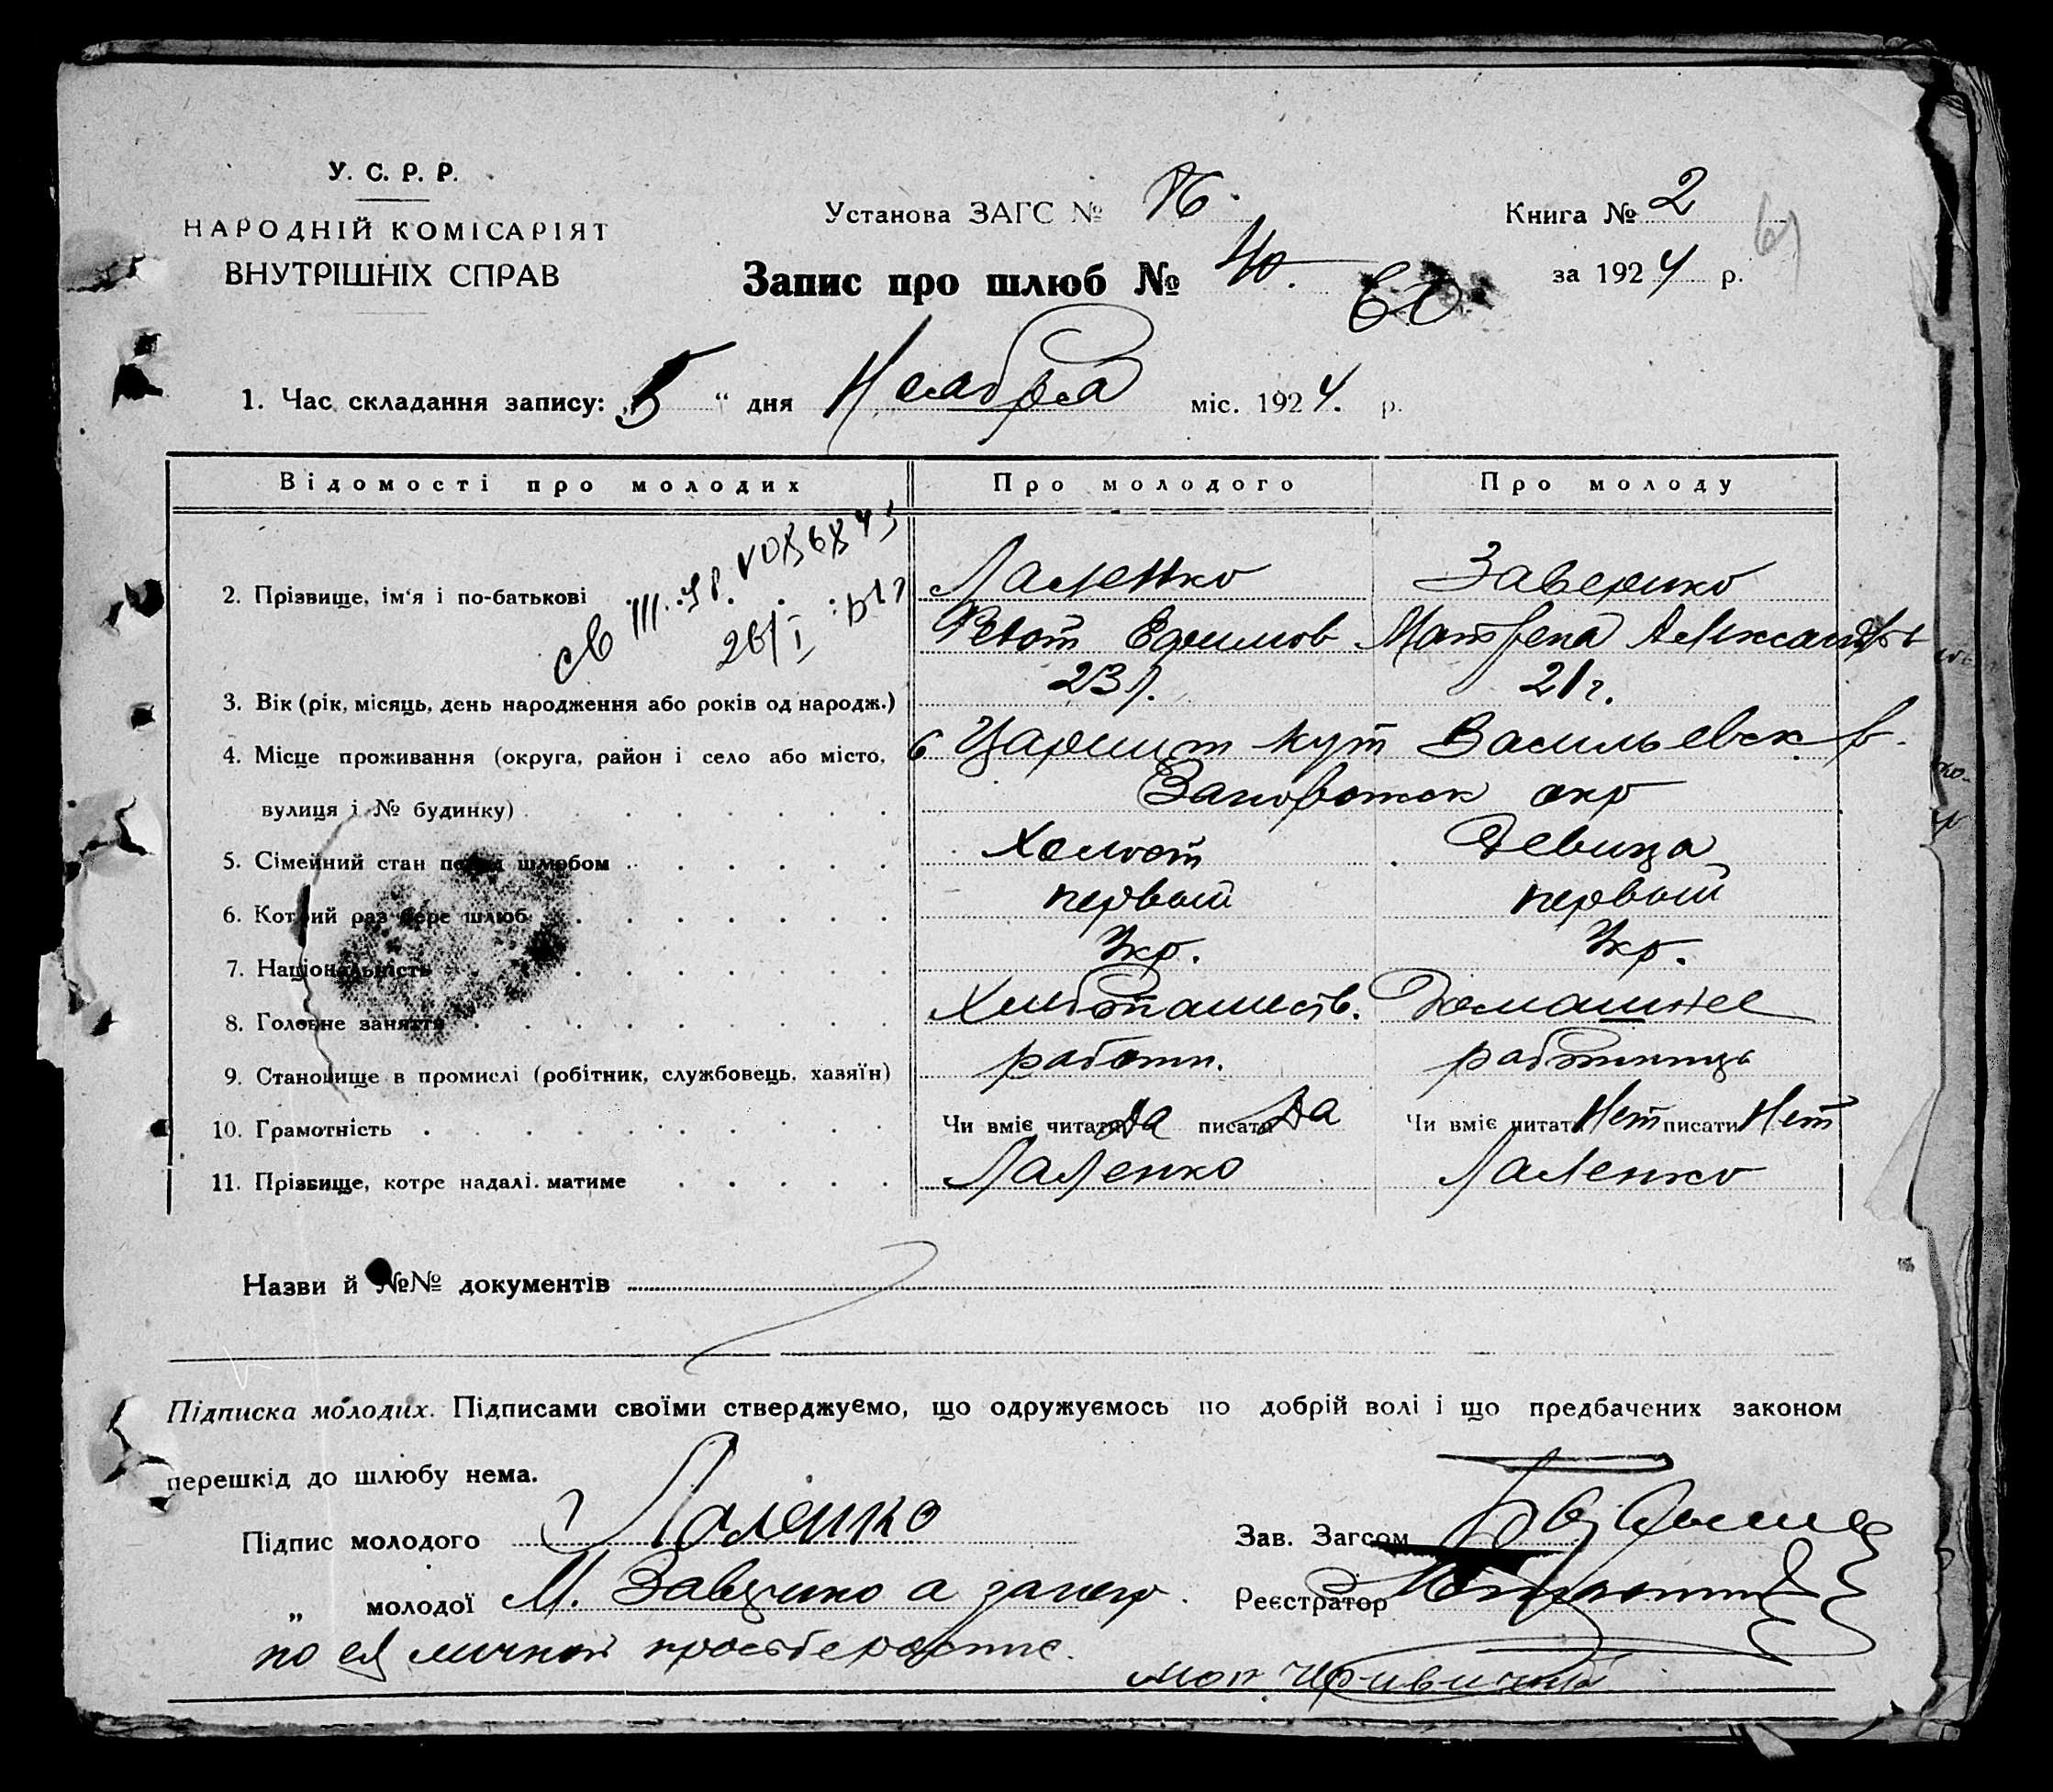 У. С. Р. Р.
НАРОДНІЙ КОМІСАРІЯТ
ВНУТРІШНІХ СПРАВ
Установа ЗАГС №
Книга № 2
Запис про шлюб № 40. 60
за 1924 р.
1. Час складання запису: „5“ дня Ноября міс. 1924. р.
Відомості про молодих Про молодого Про молоду
2. Прізвище, ім'я і по-батькові Лаленко
Ефимов Матрена Александр
3. Вік (рік, місяць, день народження або років од народж.) 23 г. 21 г.
4. Місце проживання (округа, район і село або місто, Царицын Кут Васильевск р.
вулиця і № будинку) Запорожск окр
5. Сімейний стан перед шлюбом Холост Девица
6. Котрий раз бере шлюб первый первый
7. Національність Укр. Укр.
8. Головне заняття Хлебопашеств. Домашнее
9. Становище в промислі (робітник, службовець, хазяїн) работн. работница
10. Грамотність Чи вміє читати Да писати Да Чи вміє читати Нет писати Нет
11. Прізвище, котре надалі матиме Лаленко Лаленко
Назви й №№ документів
Підписка молодих. Підписами своїми стверджуємо, що одружуємось по добрій волі і що предбачених законом
перешкід до шлюбу нема.
Підпис молодого Лаленко
Зав. Загсом
„ молодої М. а за нею
Реєстратор
по ея личной просьбе